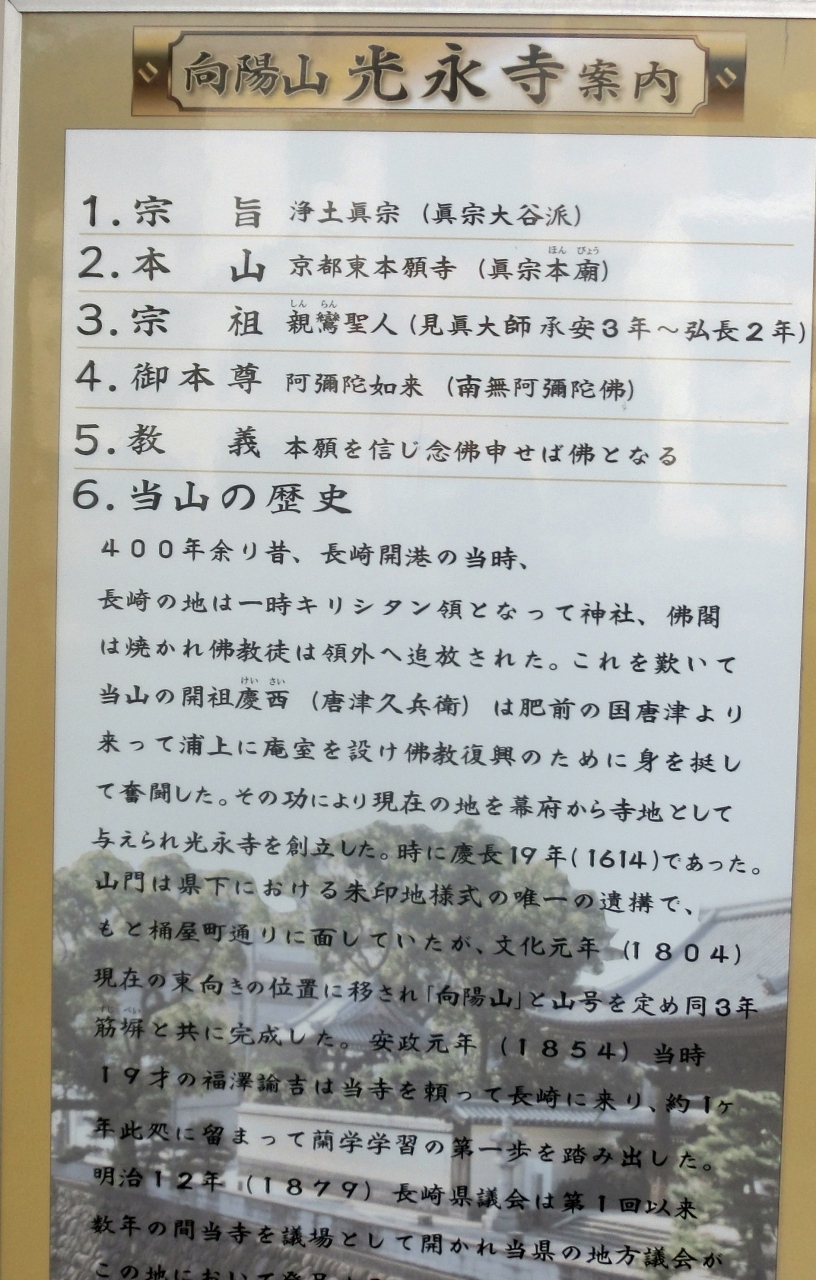 向陽山 光永寺 案内
1. 宗旨 浄土眞宗 (眞宗大谷派)
ほん びょう
2. 本山 京都東本願寺 (眞宗本廟)
しん らん
3. 宗祖 親鸞聖人 (見眞大師 承安3年～弘長2年)
4. 御本尊 阿彌陀如来 (南無阿彌陀佛)
5. 教義 本願を信じ念佛申せば佛となる
6. 当山の歴史
400年余り昔、長崎開港の当時、
長崎の地は一時キリシタン領となって神社、佛閣
は焼かれ佛教徒は領外へ追放された。これを歎いて
けい さい
当山の開祖慶西 (唐津久兵衛) は肥前の国唐津より
来って浦上に庵室を設け佛教復興のために身を挺し
て奮闘した。その功により現在の地を幕府から寺地として
与えられ光永寺を創立した。時に慶長19年(1614)であった。
山門は県下における朱印地様式の唯一の遺搆で、
もと桶屋町通りに面していたが、文化元年 (1804)
現在の東向きの位置に移され「向陽山」と山号を定め同3年
筋塀と共に完成した。安政元年 (1854) 当時
19才の福澤諭吉は当寺を頼って長崎に来り、約1ヶ
年此処に留まって蘭学学習の第一歩を踏み出した。
明治12年 (1879) 長崎県議会は第1回以来
数年の間当寺を議場として開かれ当県の地方議会が
この地において